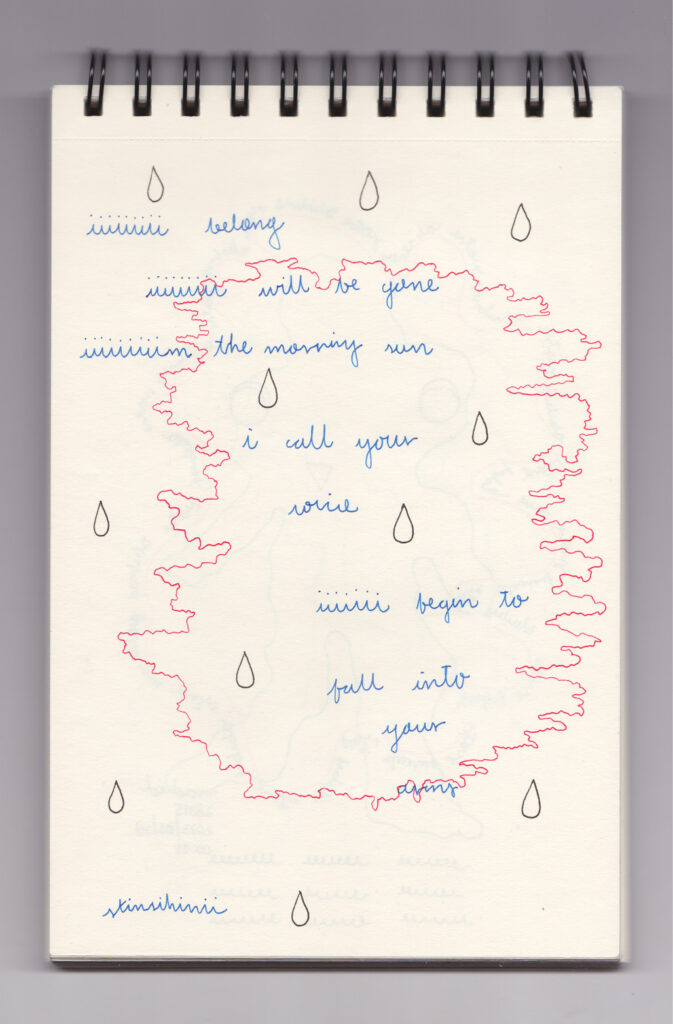 iiiiiiii belong
iiiiiiii will be gone
iiiiiiiiim the morning sun
i call your
voice
iiiiiii begin to
fall into
your
arms